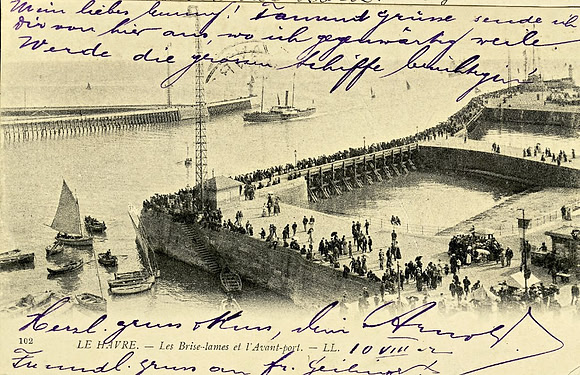 Mein liebes Bunny! Tausend Grüsse sende ich
Dir von hier aus, wo ich gegenwärtig weile.
Werde die grossen Schiffe besichtigen
Herzl. gruss & Kuss, dein Arnold
102 LE HAVRE. — Les Brise-lames et l'Avant-port. — LL. 10 VIII
Freundl. gruss an fr.